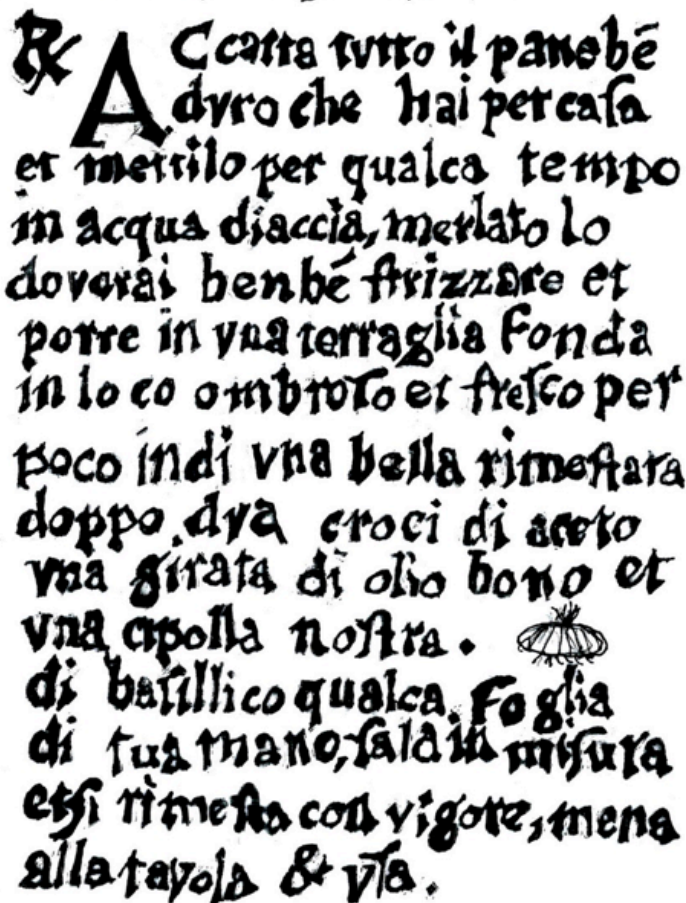 ℞ ACcatta tvtto il pane bē
dvro che hai per caſa
et mettilo per qualca tempo
in acqua diaccia, merlato lo
doverai ben bé ſtrizzare et
porre in vna terraglia fonda
in loco ombroſo et freſco per
poco indi vna bella rimeſtata
doppo dva croci di aceto
vna girata di olio bono et
vna cipolla noſtra.
di baſillico qualca foglia
di tua mano, ſala in miſura
et ſi rimeſta con vigore, mena
alla tavola & vſa.